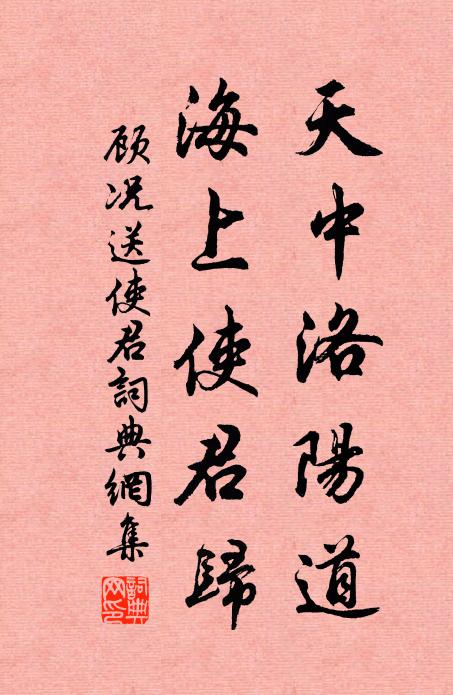 天中洛陽道
海上使君歸
顾况送使君詞典網集
詞典网印